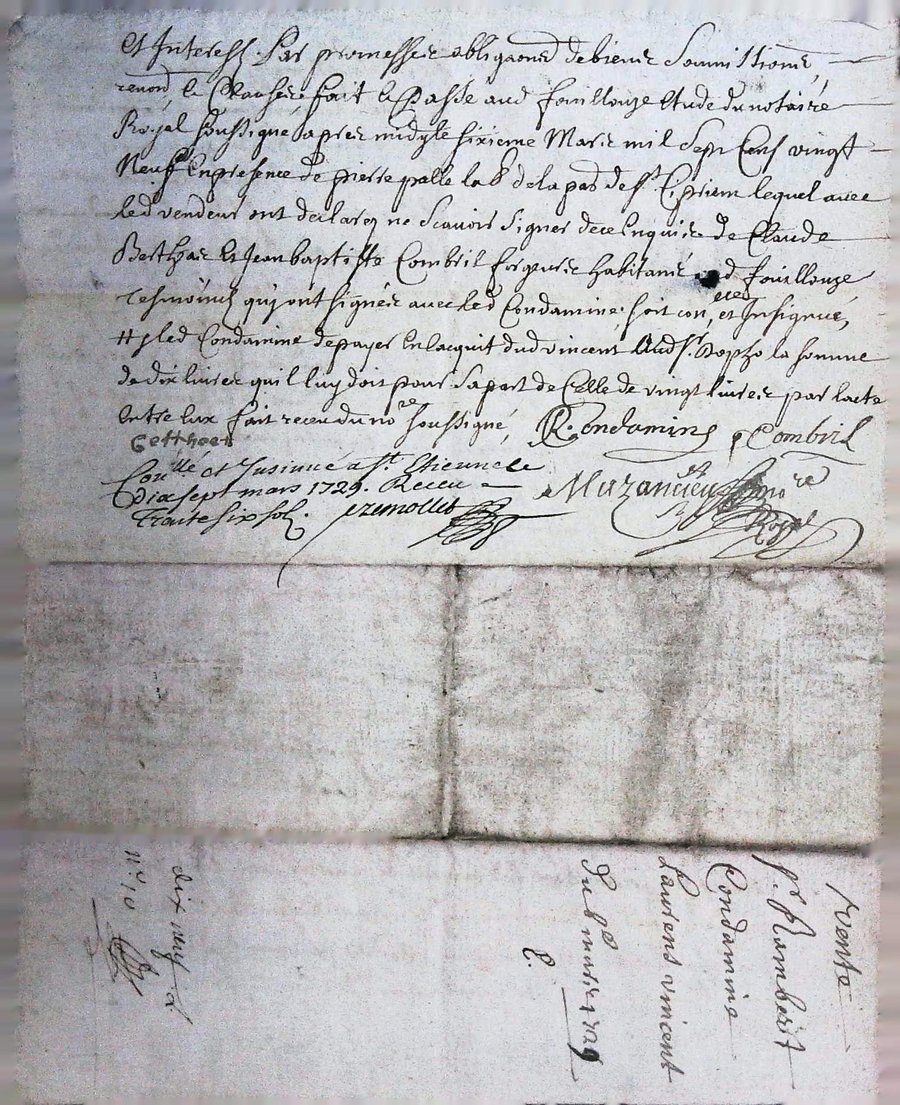 Et Interests. Par promesses obligaons de biens soumissions,
renond. & Clauses fait & Passé aud fouillouze Etude du notaire
Royal soussigné, apres midy le sixieme Mars mil Sept Cens vingt
Neuf En presence de pierre palle lab. de la pas de st. Ciprien lequel avec
led vendeur ont declaré ne Scavoir signer de ce Enquis & de Claude
Berthee Et Jean baptiste Combril forgeurs habitans ud fouillouze
Tesmoins quy ont signés avec led Condamine. soit con, et Insignué,
led Condamine de payer En lacquit dud vincent Aud sr. la somme
de dix livres quil luy doit pour Sa part de Celle de vingt livres par lacte
Entre Eux fait receu du nore soussigné,
R. Condamine Combril
Conllé et Insinué a St. Etienne le
dix sept mars 1729. Receu
Trante six sols.
Mazancieu nore
Royal
Vente
pr. Rambert
Condamine
Laurens vincent
Du 6e mars 1729
dix neuf
no. 10